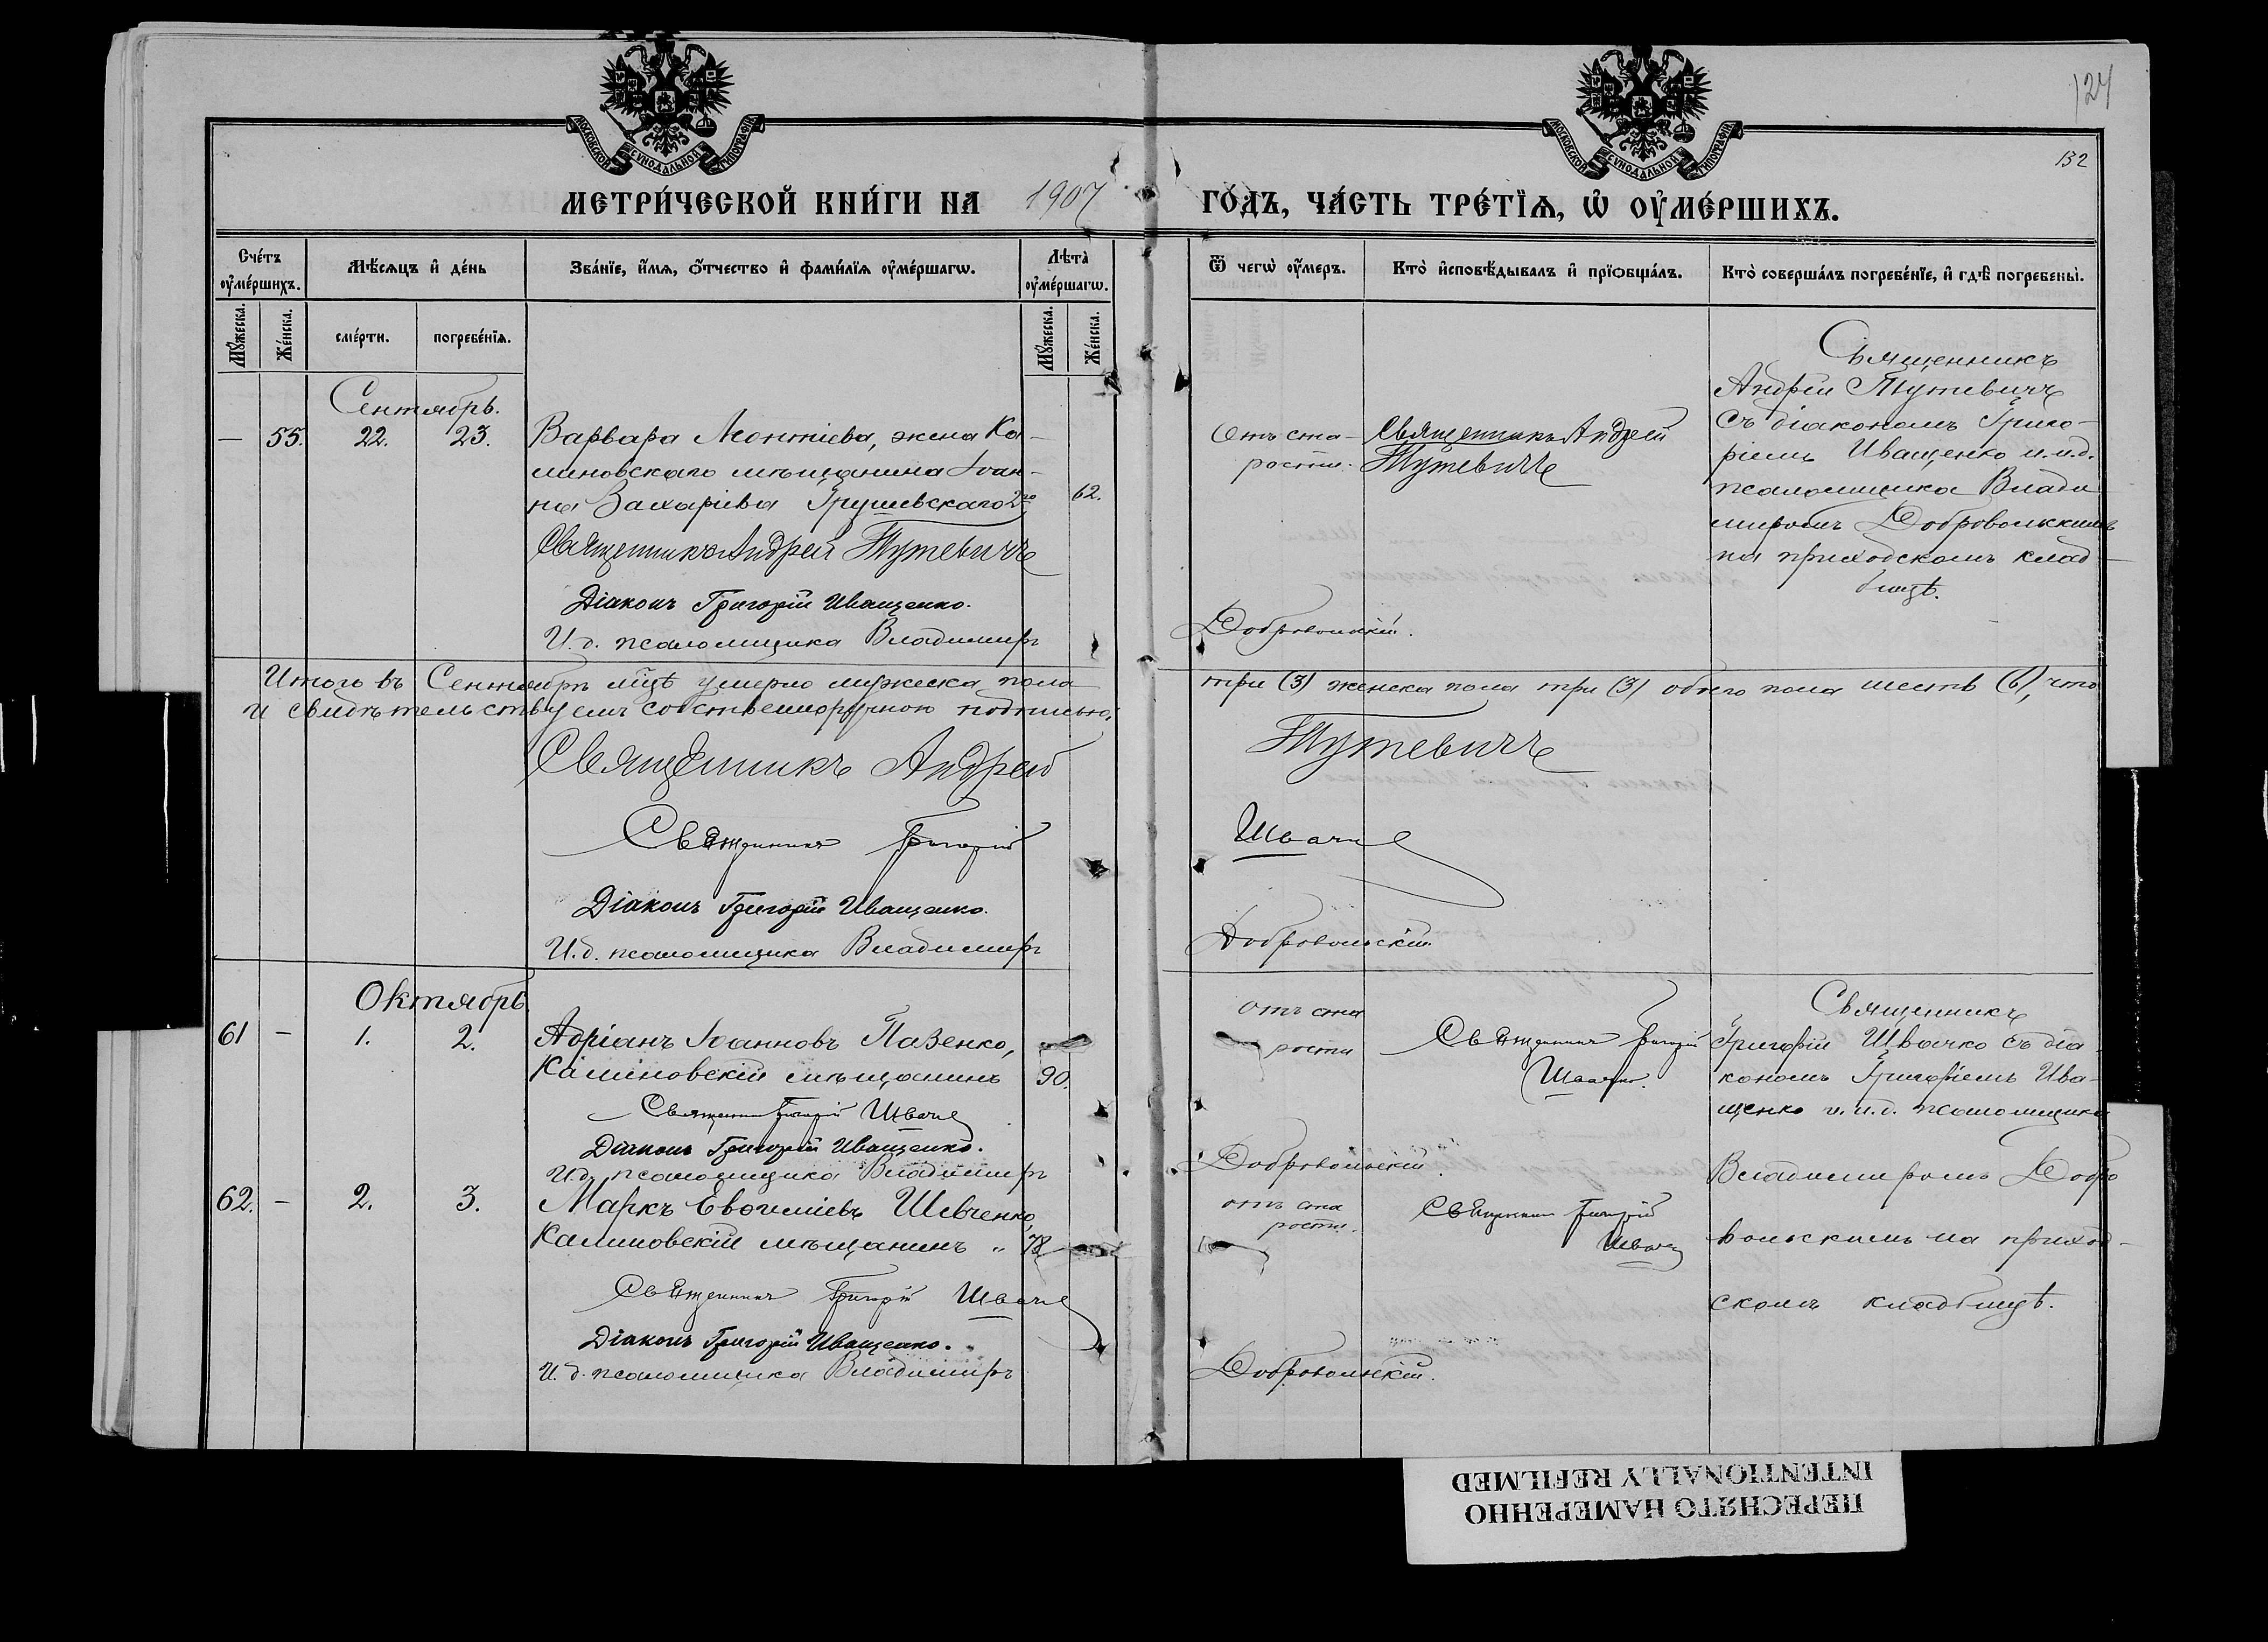 124
132
МОСКОВСКОЙ СѴНОДАЛЬНОЙ ТИПОГРАФІИ
МОСКОВСКОЙ СѴНОДАЛЬНОЙ ТИПОГРАФІИ
МЕТРИ́ЧЕСКОЙ КНИ́ГИ НА 1907 ГО́ДЪ, ЧА́СТЬ ТРЕ́ТЇѦ, Ѡ҆ ОУ҆МЕ́РШИХЪ.
Сче́тъ оу҆ме́ршихъ.
Мѣ́сѧцъ и҆ де́нь
Зва́нїе, и҆́мѧ, ѻ҆́тчество и҆ фами́лїѧ оу҆ме́ршагѡ.
Лѣта̀ оу҆ме́ршагѡ.
Ѿ чегѡ̀ оу҆́меръ.
Кто̀ и҆сповѣ́дывалъ и҆ прїѻбща́лъ.
Кто̀ соверша́лъ погребе́нїе, и҆ гдѣ̀ погребены̀.
Мꙋ́жеска.
Же́нска.
сме́рти.
погребе́нїѧ.
Мꙋ́жеска.
Же́нска.
Сентябрь.
— 55. 22. 23.
Варвара Леонтіева, жена Ка-
линовскаго мѣщанина Іоан-
на Захаріева Грушевскаго 2го
62.
Священникъ Андрей Тутевичъ
Діаконъ Григорій Иващенко.
И. д. псаломщика Владимиръ Добровольскій.
Отъ ста-
рости.
Священникъ Андрей
Тутевичъ
Священникъ
Андрей Тутевичъ
съ діакономъ Григо-
ріемъ Иващенко и и.д.
псаломщика Влади
миромъ Добровольскимъ
на приходскомъ клад-
бищѣ.
Итого въ Сентябрѣ м-цѣ умерло мужеска пола три (3) женска пола три (3) обоего пола шесть (6), что
и свидѣтельствуемъ собственноручною подписью.
Священникъ Андрей Тутевичъ
Священникъ Григорій Швачко
Діаконъ Григорій Иващенко.
И. д. псаломщика Владимиръ Добровольскій
Октябрь
61 — 1. 2.
Адріанъ Іоанновъ Пазенко,
Калиновскій мѣщанинъ 90.
Священникъ Григорій Швачко
Діаконъ Григорій Иващенко.
И.д. псаломщика Владимиръ Добровольскій.
отъ ста
рости
Священникъ Григорій
Швачко.
Священникъ
Григорій Швачко съ діа
кономъ Григоріемъ Ива-
щенко и и.д. псаломщика
Владимиромъ Добро
вольскимъ на приход-
скомъ кладбищѣ.
62. — 2. 3.
Маркъ Евѳиміевъ Шевченко,
Калиновскій мѣщанинъ „ 78
Священникъ Григорій Швачко
Діаконъ Григорій Иващенко.
И. д. псаломщика Владимиръ Добровольскій.
отъ ста
рости.
Священникъ Григорій
Швачко
ПЕРЕСНЯТО НАМЕРЕННО
INTENTIONALLY REFILMED